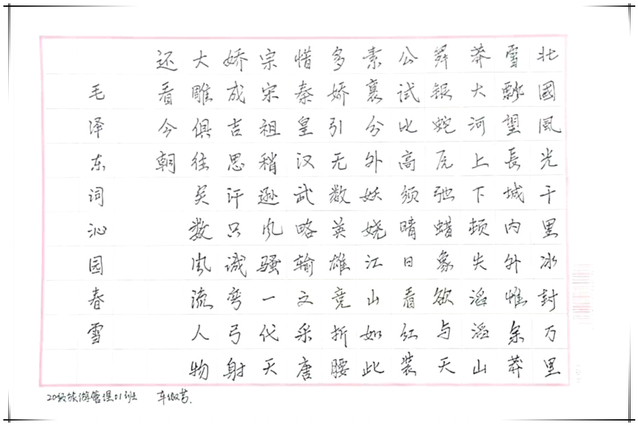 北國風光千里冰封万里
雪飘望長城内外惟余莽
莽大河上下顿失滔滔山
舞银蛇原驰蜡象欲与天
公试比高须晴日看红装
素裹分外妖娆江山如此
多娇引无数英雄竞折腰
惜秦皇汉武略输文采唐
宗宋祖稍逊风骚一代天
娇成吉思汗只识弯弓射
大雕俱往矣数风流人物
还看今朝
毛泽东词沁园春雪
20级旅游管理01班